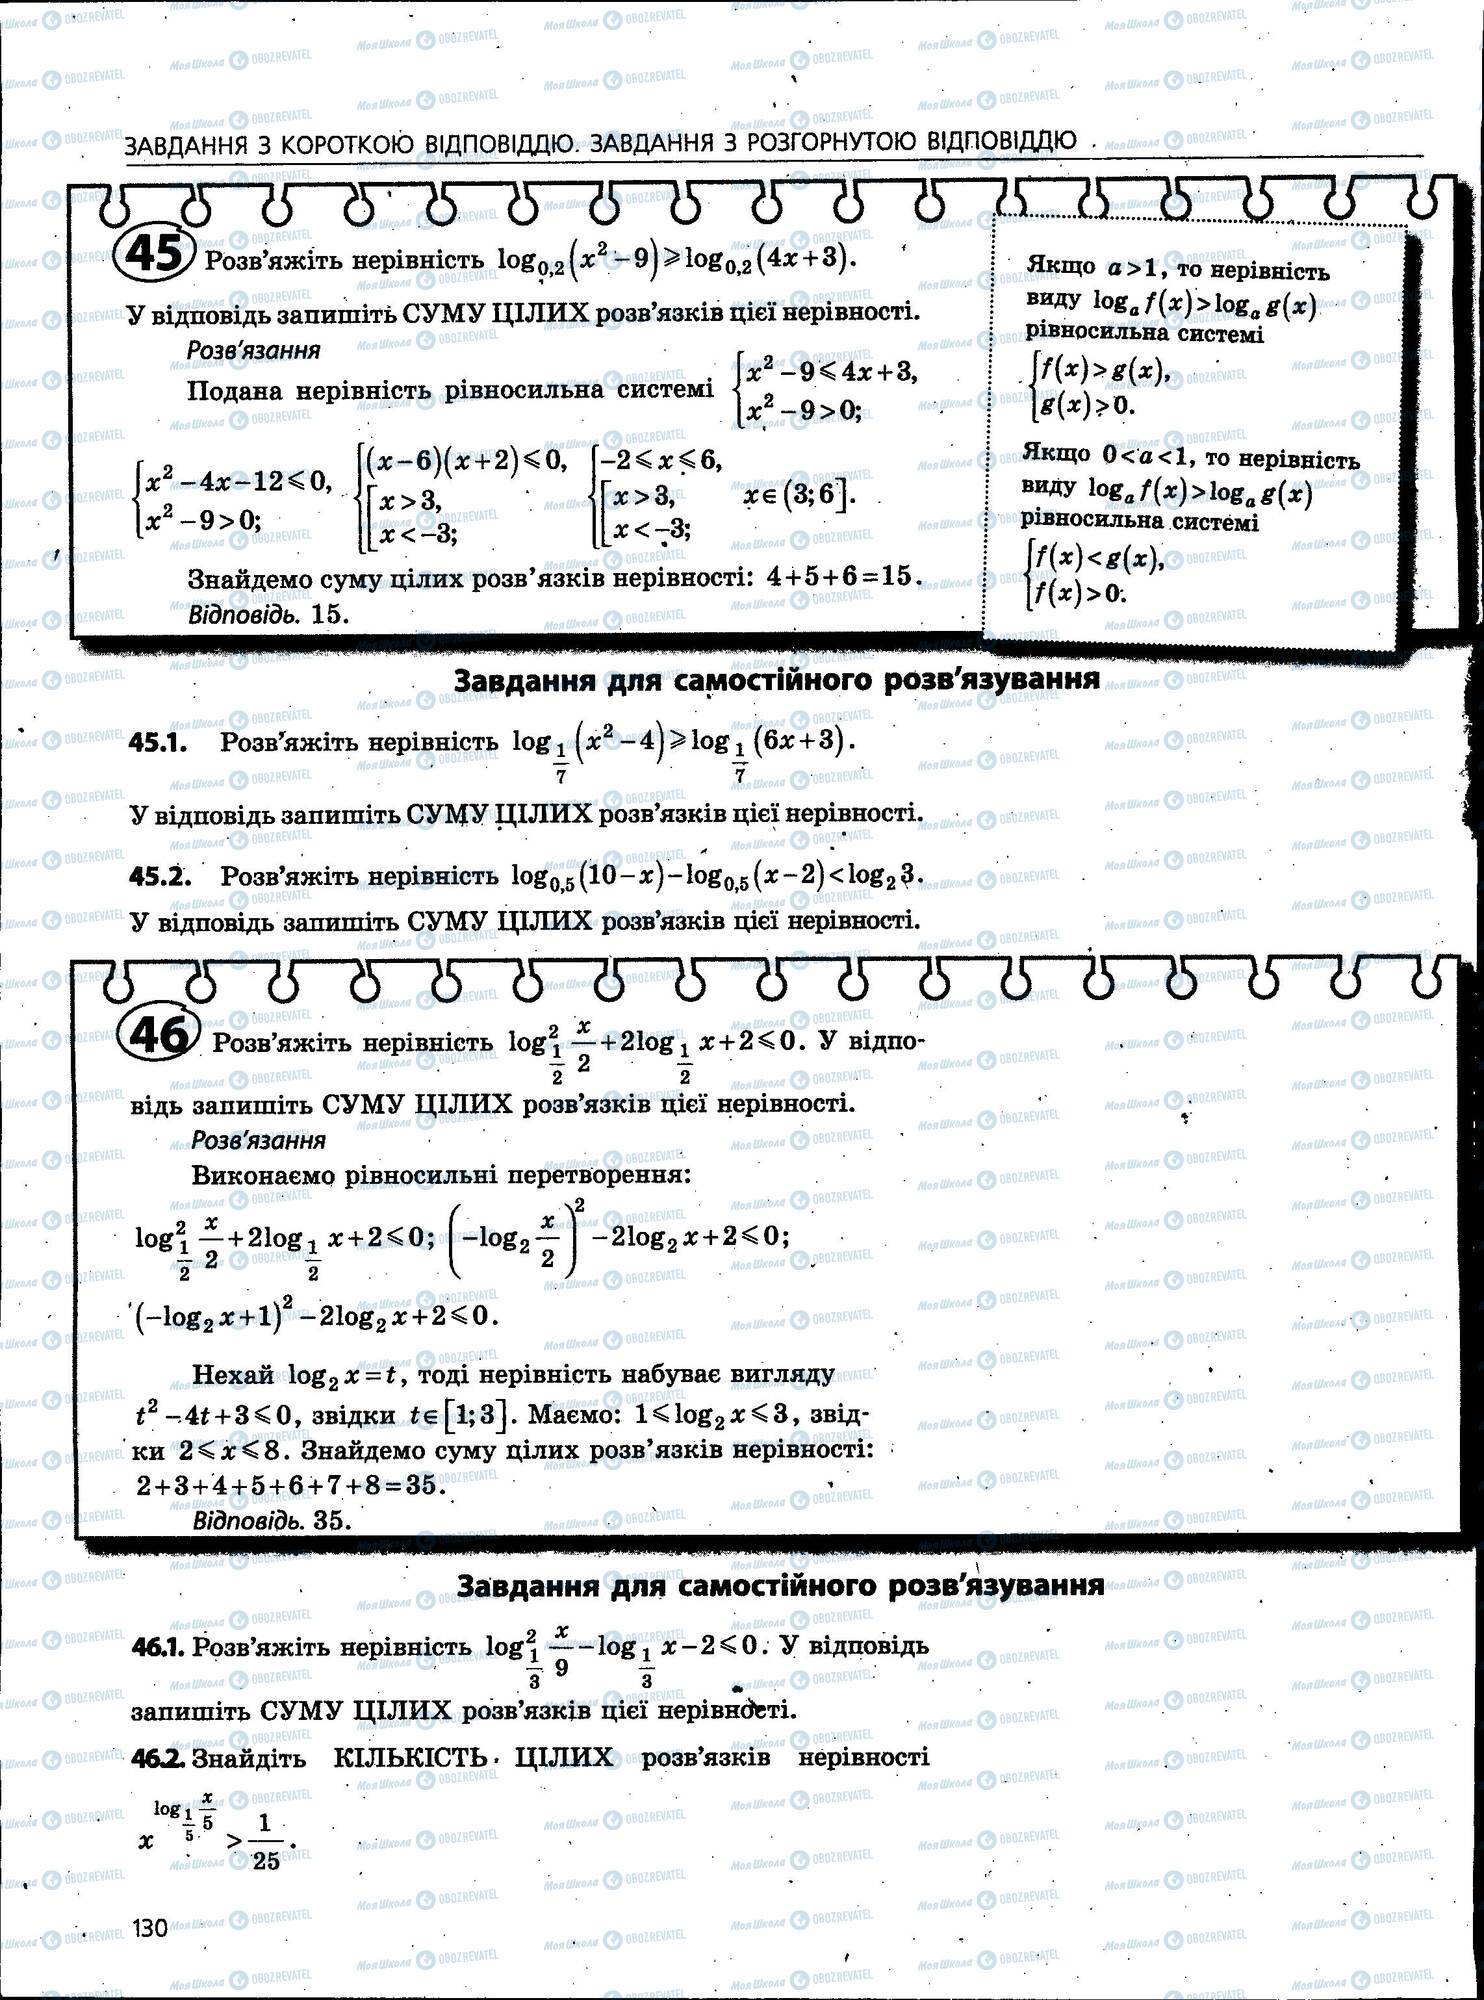 ЗАВДАННЯ З КОРОТКОЮ ВІДПОВІДДЮ. ЗАВДАННЯ З РОЗГОРНУТОЮ ВІДПОВІДДЮ
45 Розв'яжіть нерівність log_{0,2}(x² − 9) ⩾ log_{0,2}(4x + 3).
У відповідь запишіть СУМУ ЦІЛИХ розв'язків цієї нерівності.
Розв'язання
Подана нерівність рівносильна системі { x² − 9 ⩽ 4x + 3, x² − 9 > 0;
{ x² − 4x − 12 ⩽ 0, x² − 9 > 0; { (x − 6)(x + 2) ⩽ 0, [ x > 3, x < −3; { −2 ⩽ x ⩽ 6, [ x > 3, x < −3; x ∈ (3; 6].
Знайдемо суму цілих розв'язків нерівності: 4 + 5 + 6 = 15.
Відповідь. 15.
Якщо a > 1, то нерівність
виду log_a f(x) > log_a g(x)
рівносильна системі
{ f(x) > g(x),
g(x) > 0.
Якщо 0 < a < 1, то нерівність
виду log_a f(x) > log_a g(x)
рівносильна системі
{ f(x) < g(x),
f(x) > 0.
Завдання для самостійного розв'язування
45.1. Розв'яжіть нерівність log_{1/7}(x² − 4) ⩾ log_{1/7}(6x + 3).
У відповідь запишіть СУМУ ЦІЛИХ розв'язків цієї нерівності.
45.2. Розв'яжіть нерівність log_{0,5}(10 − x) − log_{0,5}(x − 2) < log_2 3.
У відповідь запишіть СУМУ ЦІЛИХ розв'язків цієї нерівності.
46 Розв'яжіть нерівність log²_{1/2} x/2 + 2log_{1/2} x + 2 ⩽ 0. У відпо-
відь запишіть СУМУ ЦІЛИХ розв'язків цієї нерівності.
Розв'язання
Виконаємо рівносильні перетворення:
log²_{1/2} x/2 + 2log_{1/2} x + 2 ⩽ 0; (−log_2 x/2)² − 2log_2 x + 2 ⩽ 0;
(−log_2 x + 1)² − 2log_2 x + 2 ⩽ 0.
Нехай log_2 x = t, тоді нерівність набуває вигляду
t² − 4t + 3 ⩽ 0, звідки t ∈ [1; 3]. Маємо: 1 ⩽ log_2 x ⩽ 3, звід-
ки 2 ⩽ x ⩽ 8. Знайдемо суму цілих розв'язків нерівності:
2 + 3 + 4 + 5 + 6 + 7 + 8 = 35.
Відповідь. 35.
Завдання для самостійного розв'язування
46.1. Розв'яжіть нерівність log²_{1/3} x/9 − log_{1/3} x − 2 ⩽ 0. У відповідь
запишіть СУМУ ЦІЛИХ розв'язків цієї нерівності.
46.2. Знайдіть КІЛЬКІСТЬ ЦІЛИХ розв'язків нерівності
x^{log_{1/5} x/5} > 1/25.
130